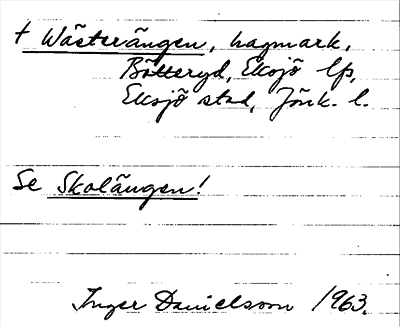 † Wästerängen, hagmark,
Bötteryd, Eksjö lfs,
Eksjö stad, Jönk. l.
Se Skolängen!
Inger Danielsson 1963.